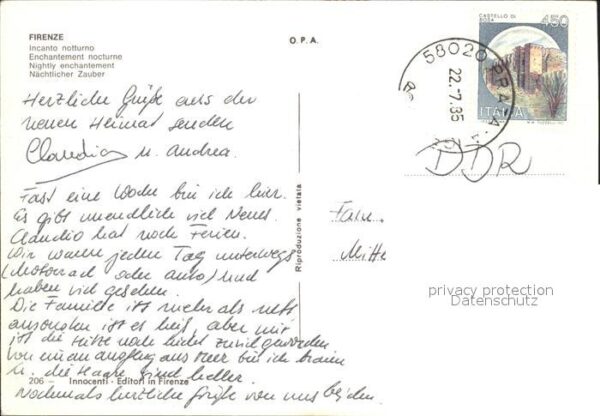 FIRENZE
Incanto notturno
Enchantement nocturne
Nightly enchantement
Nächtlicher Zauber
O. P. A.
CASTELLO DI
450
ITALIA
58020
22.-7.85
DDR
Herzliche Grüße aus der
neuen Heimat senden
Claudio u. Andrea.
Fast eine Woche bin ich hier.
Es gibt unendlich viel Neues.
Claudio hat noch Ferien.
Wir waren jeden Tag unterwegs
(Motorrad oder Auto) und
haben viel gesehen.
Die Familie ist mehr als nett
ansonsten ist es heiß, aber mir
ist die Hitze
von einem Ausflug ans Meer bin ich braun
u. die Haare sind heller.
Nochmals herzliche Grüße von uns beiden
Fam.
Mitte
Riproduzione vietata
privacy protection
Datenschutz
206 - Innocenti - Editori in Firenze